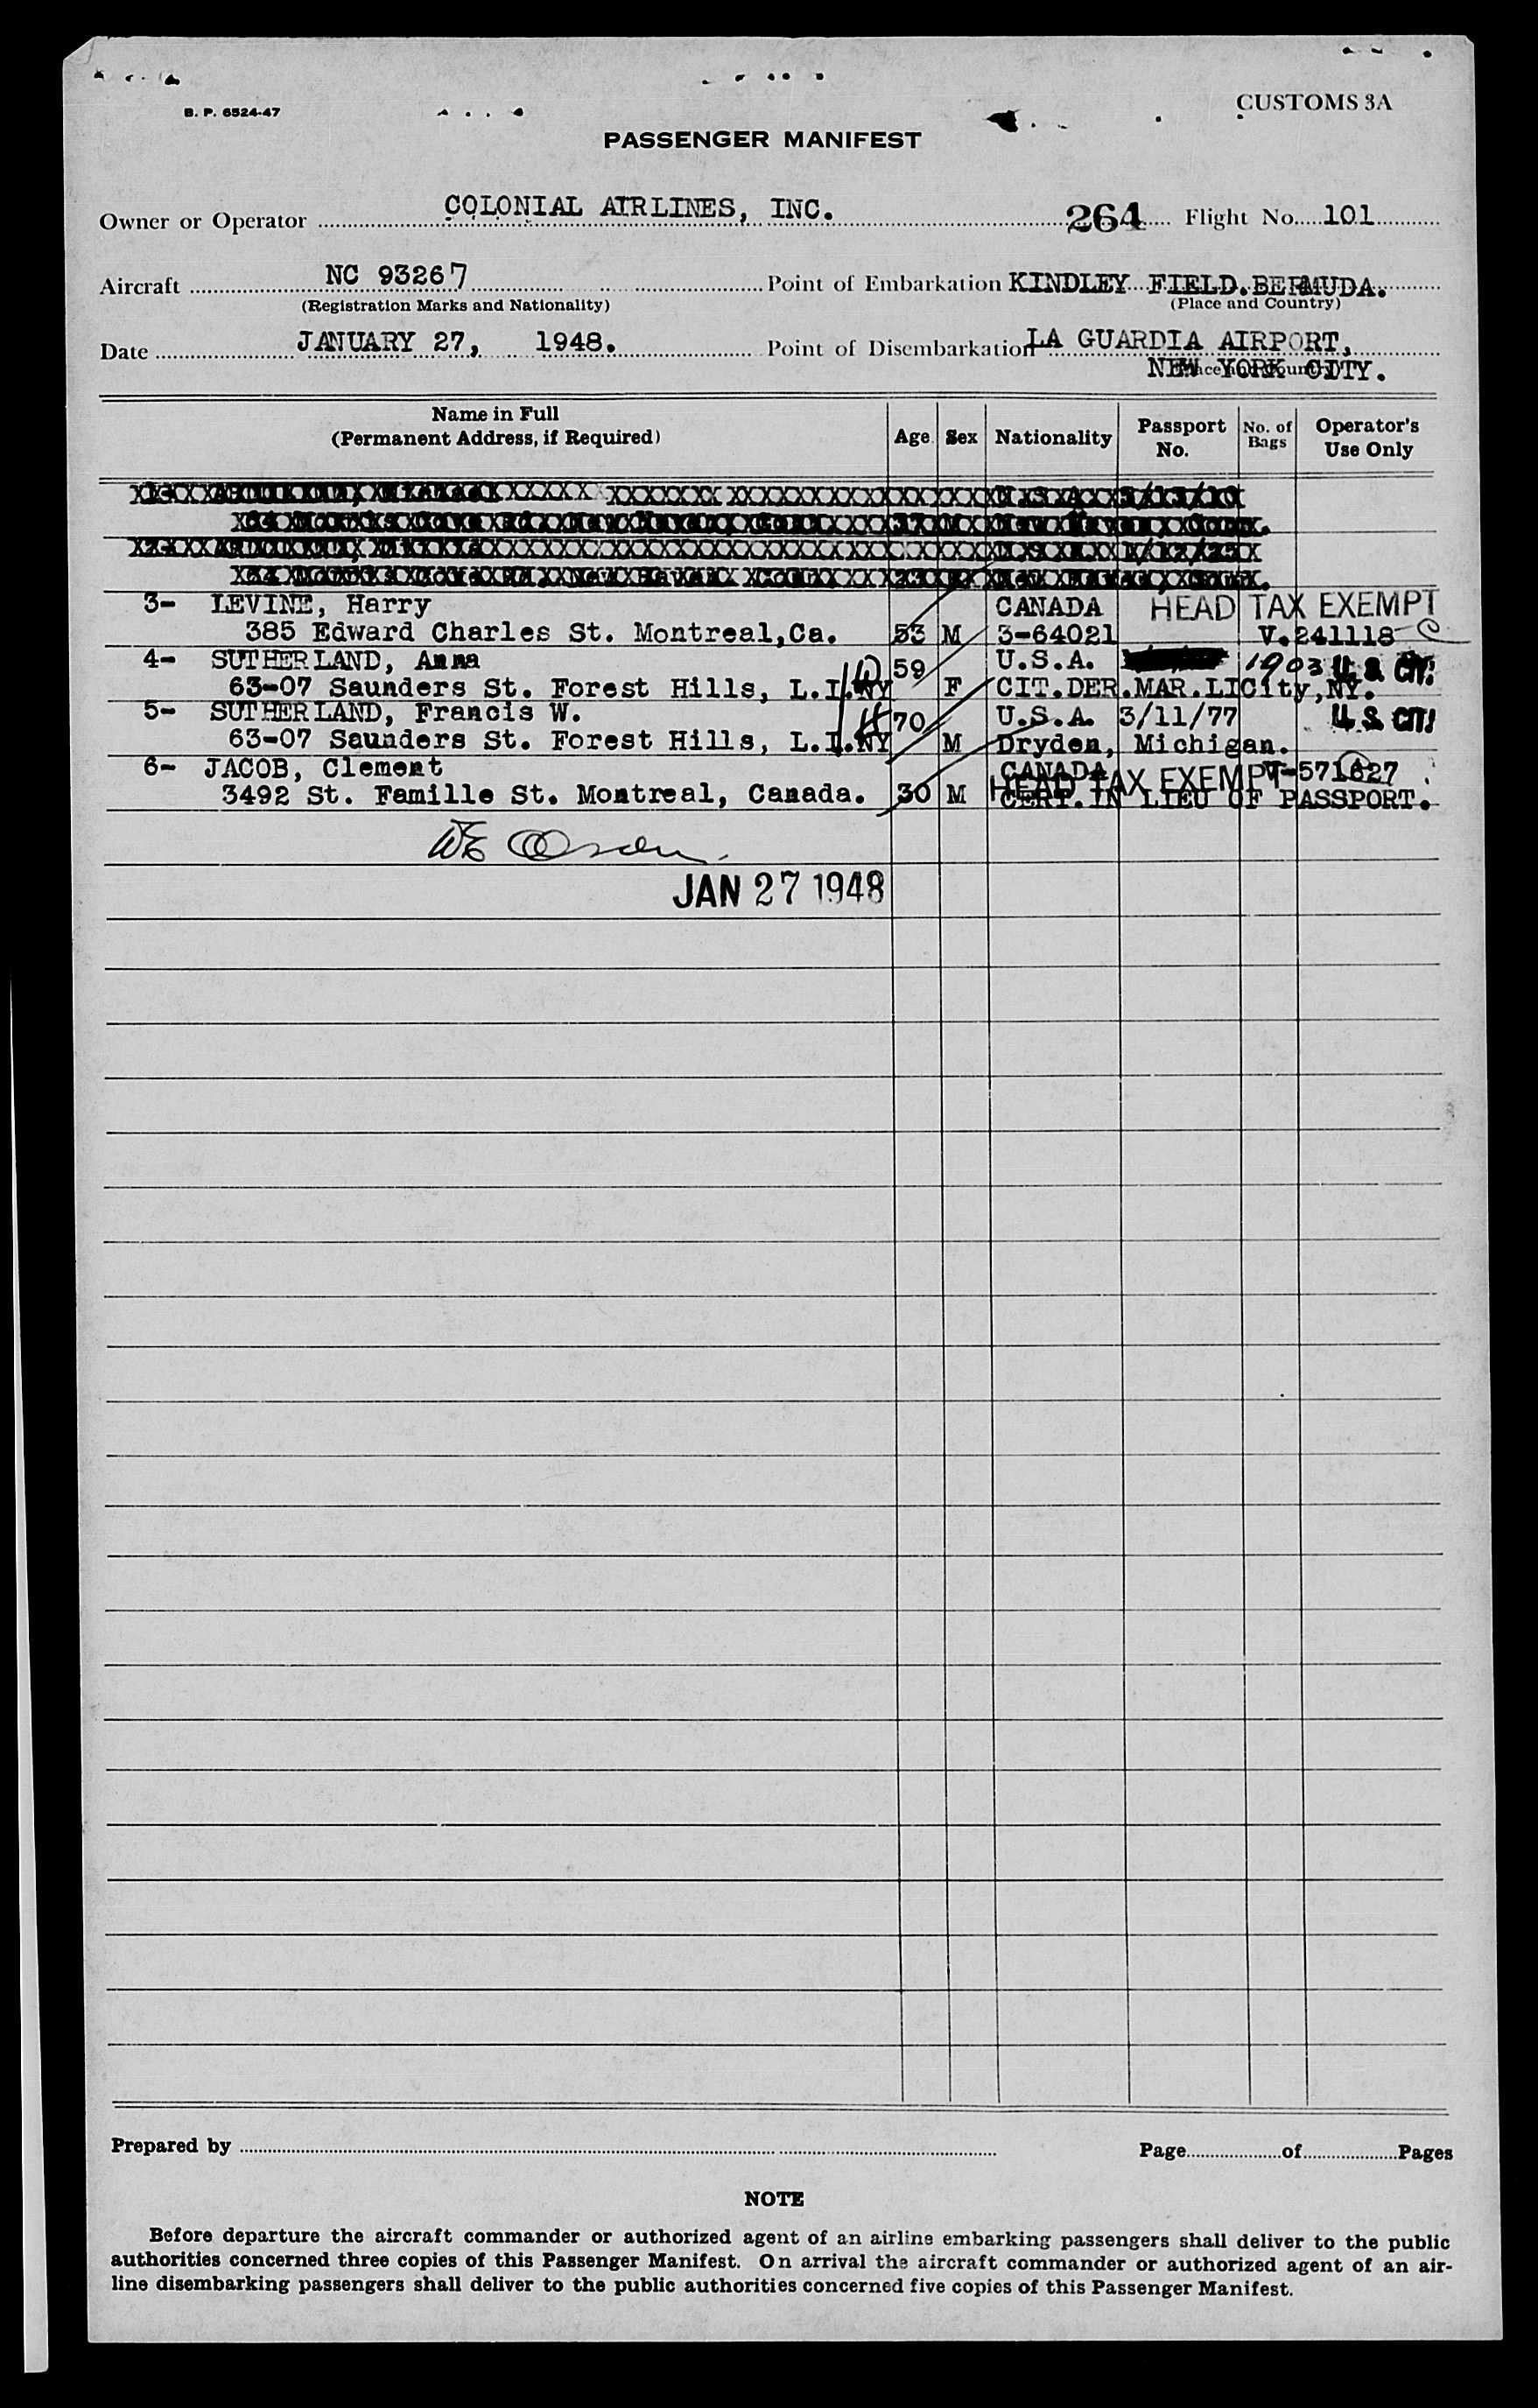 B. P. 6524-47
CUSTOMS 3A
PASSENGER MANIFEST
Owner or Operator COLONIAL AIRLINES, INC. 264 Flight No. 101
Aircraft NC 93267 Point of Embarkation KINDLEY FIELD.BERMUDA.
(Registration Marks and Nationality) (Place and Country)
Date JANUARY 27, 1948. Point of Disembarkation LA GUARDIA AIRPORT,
NEW YORK CITY.
Name in Full
(Permanent Address, if Required) Age Sex Nationality Passport No. No. of Bags Operator's Use Only
3- LEVINE, Harry CANADA HEAD TAX EXEMPT
385 Edward Charles St. Montreal,Ca. 53 M 3-64021 V.241118
4- SUTHERLAND, Anna 59 U.S.A. 1903 U.S. CIT!
63-07 Saunders St. Forest Hills, L.I.NY F CIT.DER.MAR.LICity,NY.
5- SUTHERLAND, Francis W. 70 U.S.A. 3/11/77 U.S. CIT!
63-07 Saunders St. Forest Hills, L.I.NY M Dryden, Michigan.
6- JACOB, Clement CANADA HEAD TAX EXEMPT V-571627
3492 St. Famille St. Montreal, Canada. 30 M CERT.IN LIEU OF PASSPORT.
JAN 27 1948
Prepared by Page of Pages
NOTE
Before departure the aircraft commander or authorized agent of an airline embarking passengers shall deliver to the public
authorities concerned three copies of this Passenger Manifest. On arrival the aircraft commander or authorized agent of an air-
line disembarking passengers shall deliver to the public authorities concerned five copies of this Passenger Manifest.